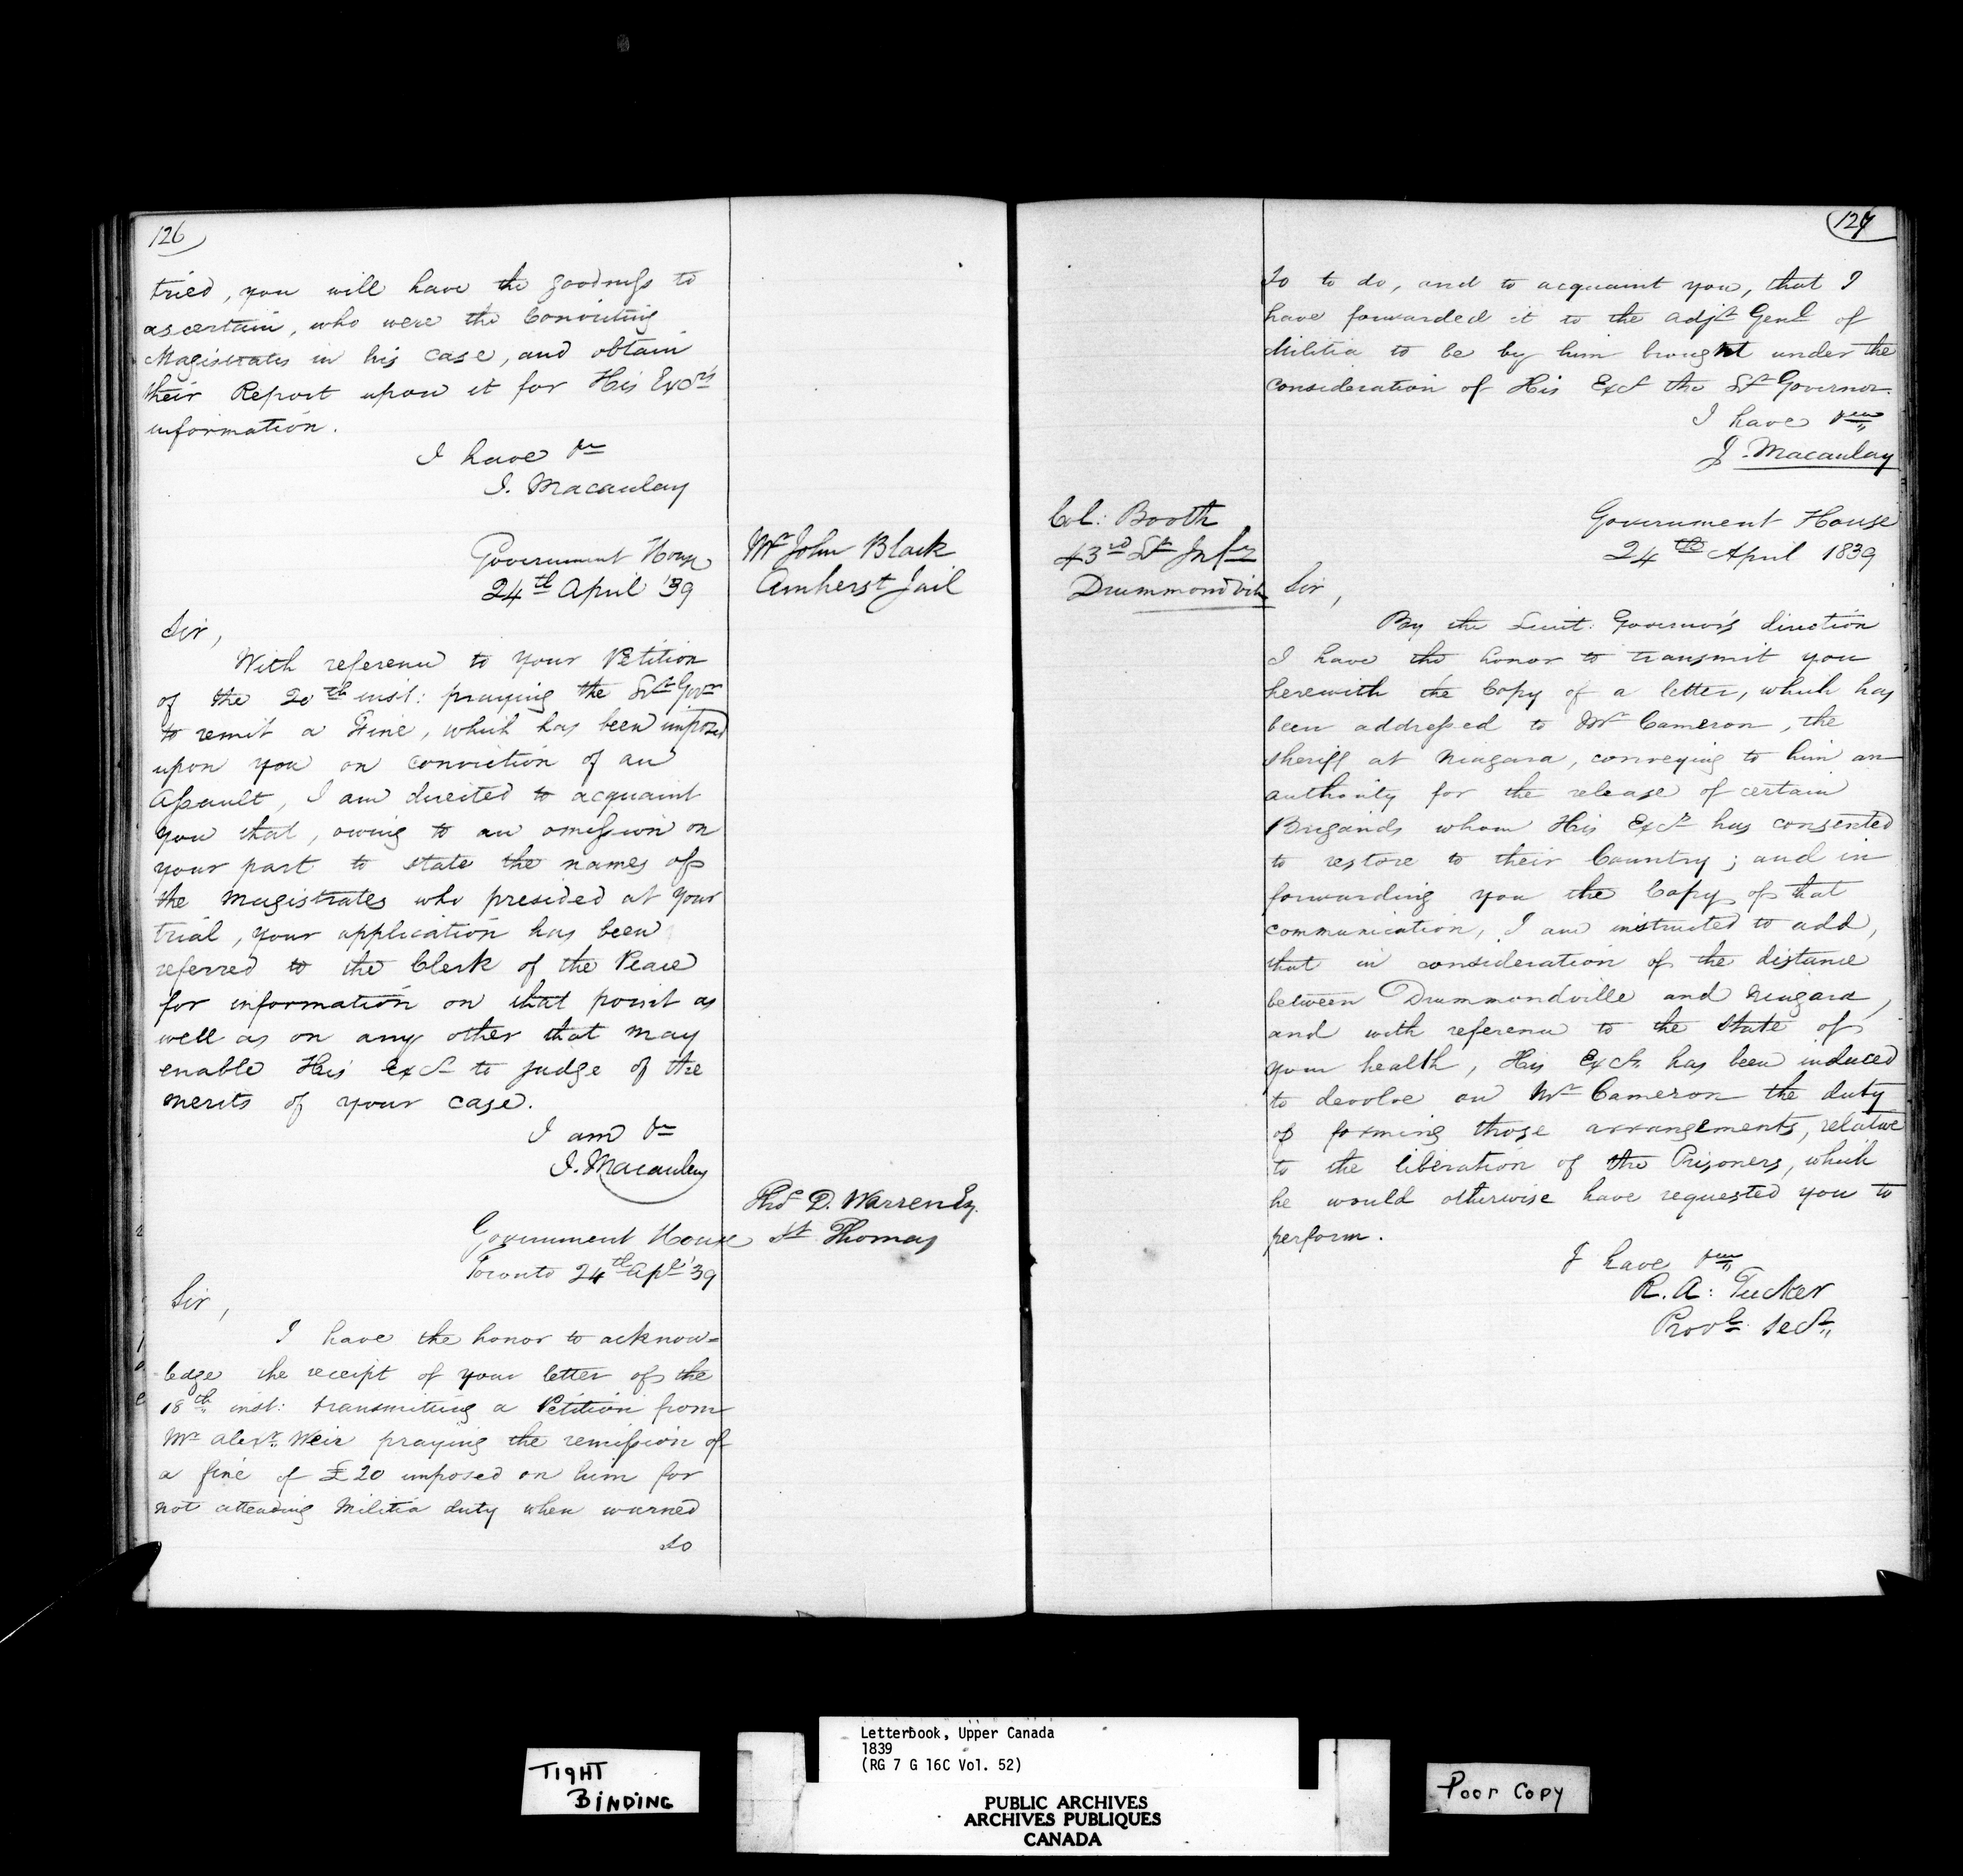 126
tried, you will have the goodness to
ascertain, who were the Convicting
Magistrates in his case, and obtain
their Report upon it for His Excy's
information.
I have &c
J. Macaulay
Mr John Black
Amherst Jail
Government House
24th April '39
Sir,
With reference to your Petition
of the 20th inst: praying the Lt Govr
to remit a Fine, which has been imposed
upon you on conviction of an
Assault, I am directed to acquaint
you that, owing to an omission on
your part to state the names of
the Magistrates who presided at your
trial, your application has been
referred to the Clerk of the Peace
for information on that point as
well as on any other that may
enable His Excy to judge of the
merits of your case.
I am &c
J. Macaulay
Thos D. Warren Esq.
St Thomas
Government House
Toronto 24th Apl '39
Sir,
I have the honor to acknow=
ledge the receipt of your letter of the
18th inst: transmitting a Petition from
Mr Alexr Weir praying the remission of
a fine of £20 imposed on him for
not attending Militia duty when warned
so
127
So to do, and to acquaint you, that I
have forwarded it to the Adjt Genl of
Militia to be by him brought under the
consideration of His Excy the Lt Governor.
I have &c
J. Macaulay
Col: Booth
43rd Lt Infy
Drummondville
Government House
24th April 1839
Sir,
By the Lieut: Governor's direction
I have the honor to transmit you
herewith the Copy of a letter, which has
been addressed to Mr Cameron, the
Sheriff at Niagara, conveying to him an
authority for the release of certain
Brigands whom His Excy has consented
to restore to their Country; and in
forwarding you the Copy of that
communication, I am instructed to add,
that in consideration of the distance
between Drummondville and Niagara,
and with reference to the state of
your health, His Excy has been induced
to devolve on Mr Cameron the duty
of forming those arrangements, relative
to the liberation of the Prisoners, which
he would otherwise have requested you to
perform.
I have &c
R. A: Tucker
Provl Secy
TIGHT
BINDING
Letterbook, Upper Canada
1839
(RG 7 G 16C Vol. 52)
PUBLIC ARCHIVES
ARCHIVES PUBLIQUES
CANADA
Poor Copy